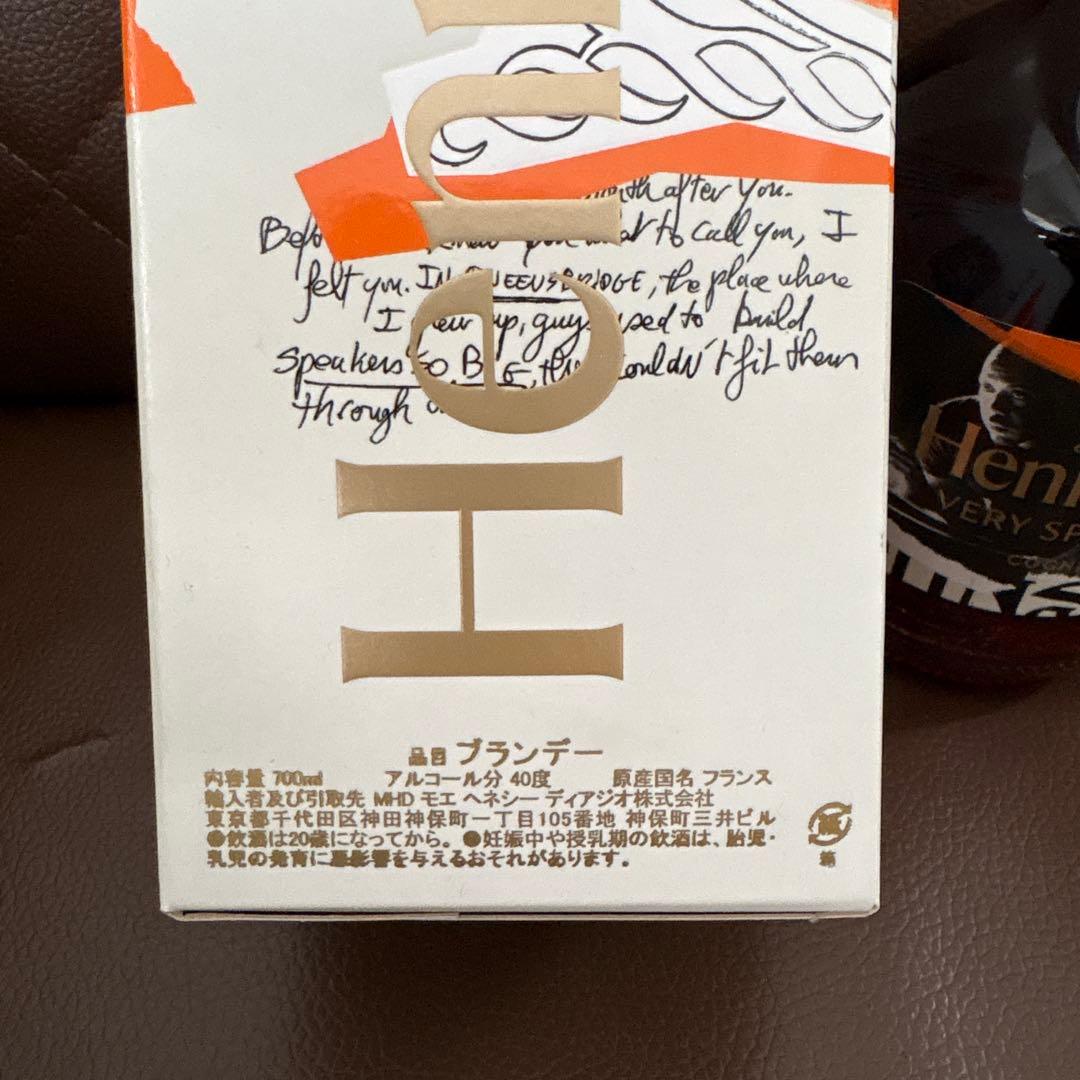 after you.
to call you, I
felt you. IN QUEENSBRIDGE, the place where
I grew up, guys used to build
speakers SO BIG, they couldn't fit them
through
Hen
品目 ブランデー
内容量 700ml アルコール分 40度 原産国名 フランス
輸入者及び引取先 MHD モエ ヘネシー ディアジオ株式会社
東京都千代田区神田神保町一丁目105番地 神保町三井ビル
●飲酒は20歳になってから。●妊娠中や授乳期の飲酒は、胎児・
乳児の発育に悪影響を与えるおそれがあります。
紙
箱
Henn
VERY SP
COGN